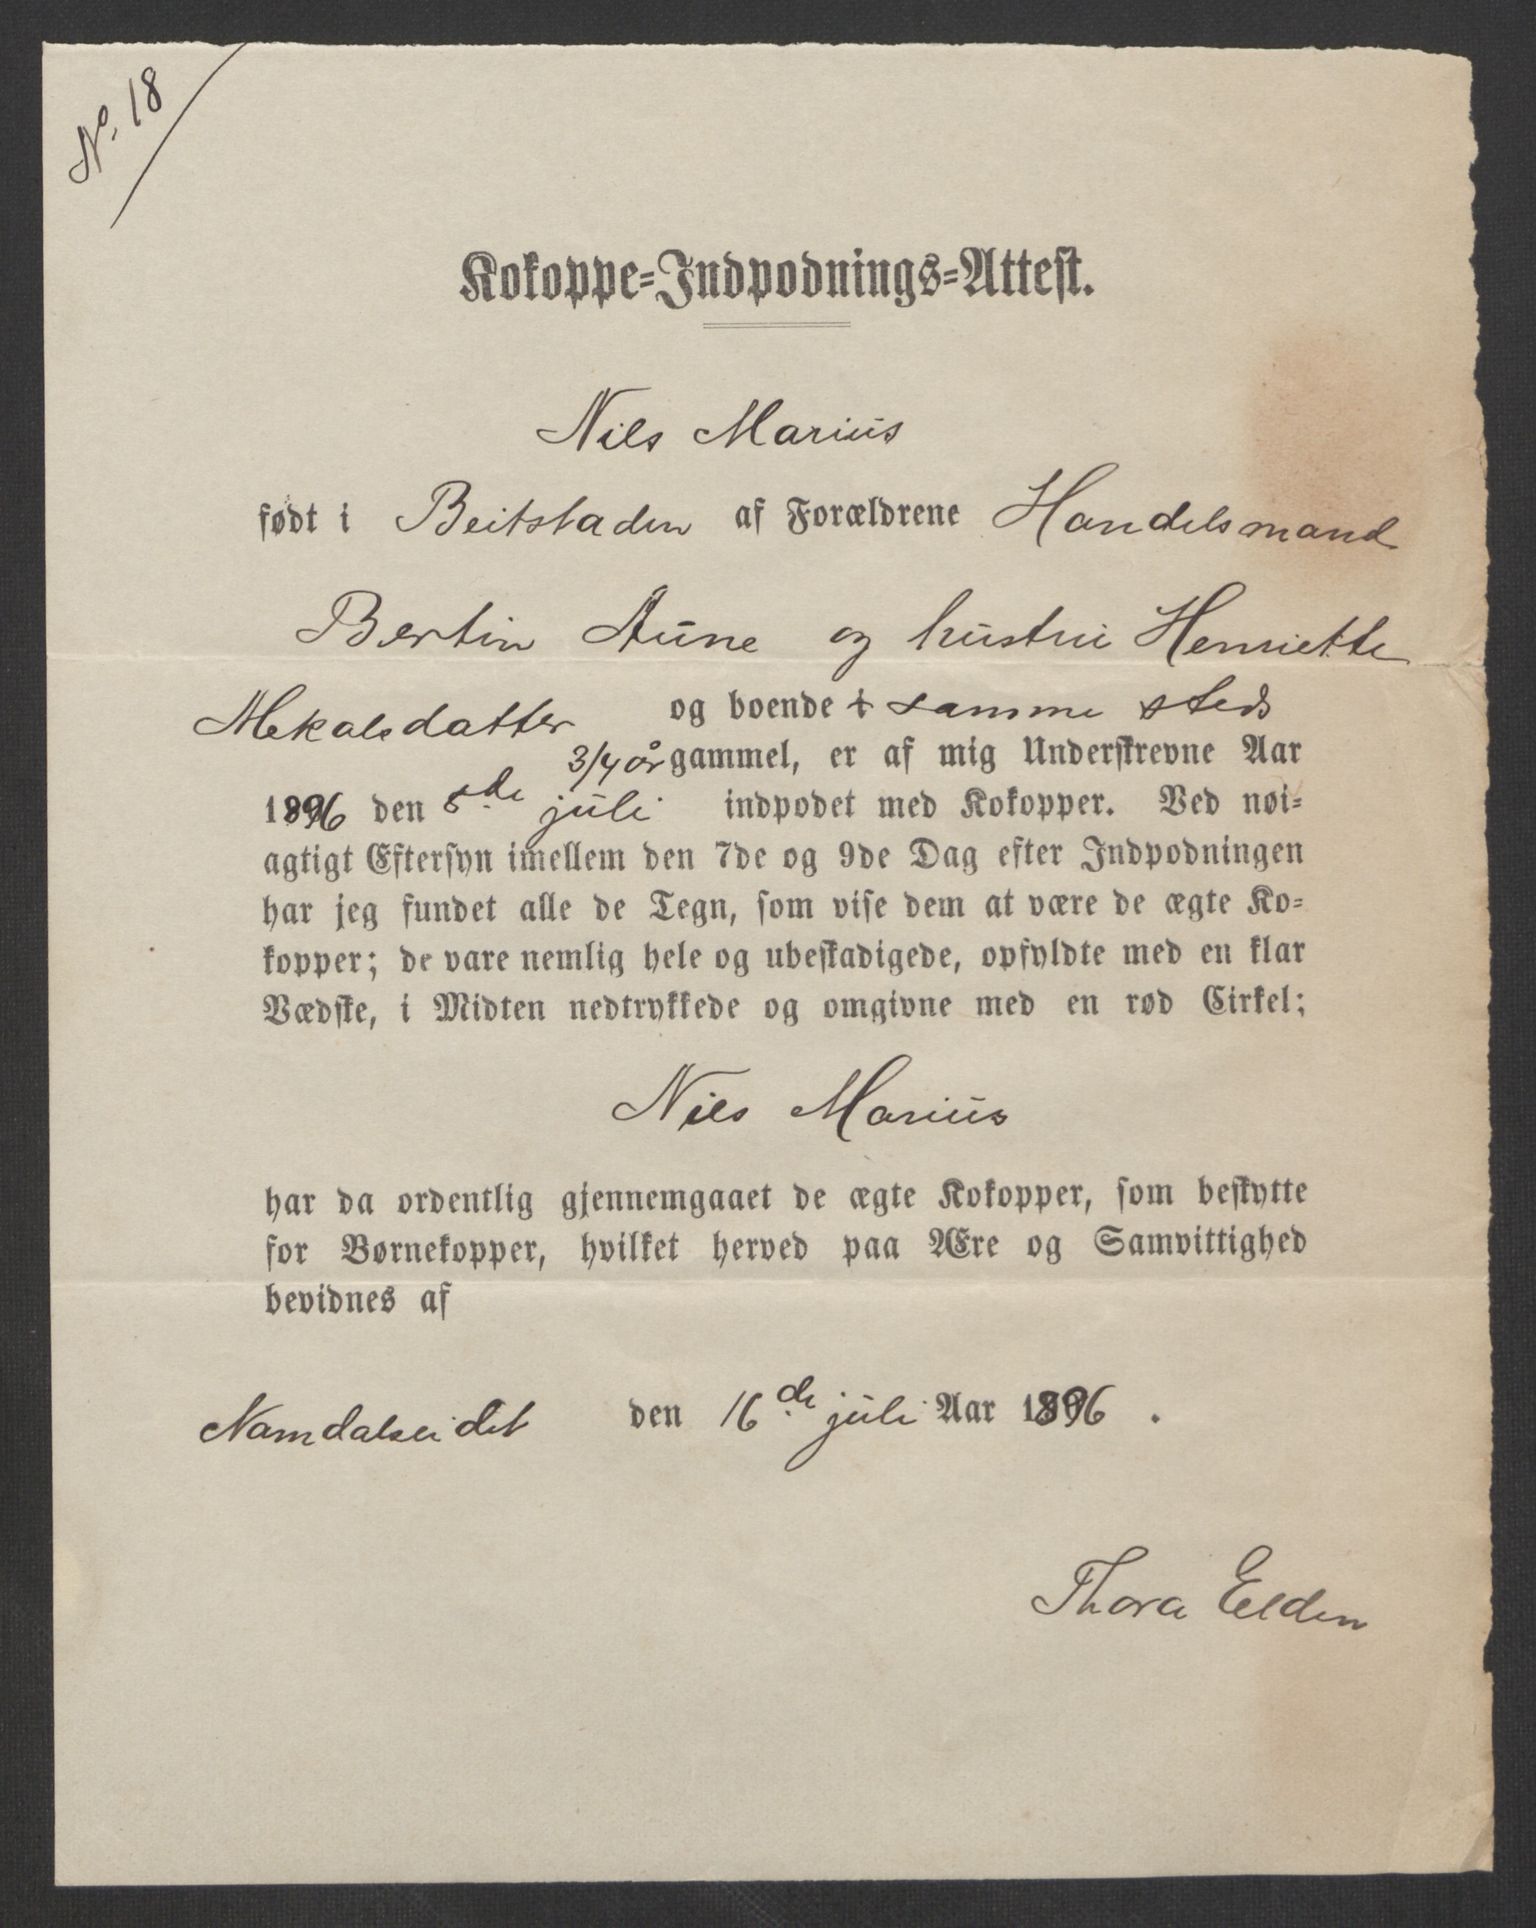 No. 18
Kokoppe-Indpodnings-Attest.
Nils Marius
født i Beitstaden af Forældrene Handelsmand
Bertin Aune og hustru Henriette
Mekalsdatter og boende i samme steds
3/4 år gammel, er af mig Underskrevne Aar
1896 den 8de juli indpodet med Kokopper. Ved nøi-
agtigt Eftersyn imellem den 7de og 9de Dag efter Indpodningen
har jeg fundet alle de Tegn, som vise dem at være de ægte Ko-
kopper; de vare nemlig hele og ubeskadigede, opfyldte med en klar
Vædske, i Midten nedtrykkede og omgivne med en rød Cirkel;
Nils Marius
har da ordentlig gjennemgaaet de ægte Kokopper, som beskytte
for Børnekopper, hvilket herved paa Ære og Samvittighed
bevidnes af
Namdalseidet den 16de juli Aar 1896.
Thora Elden